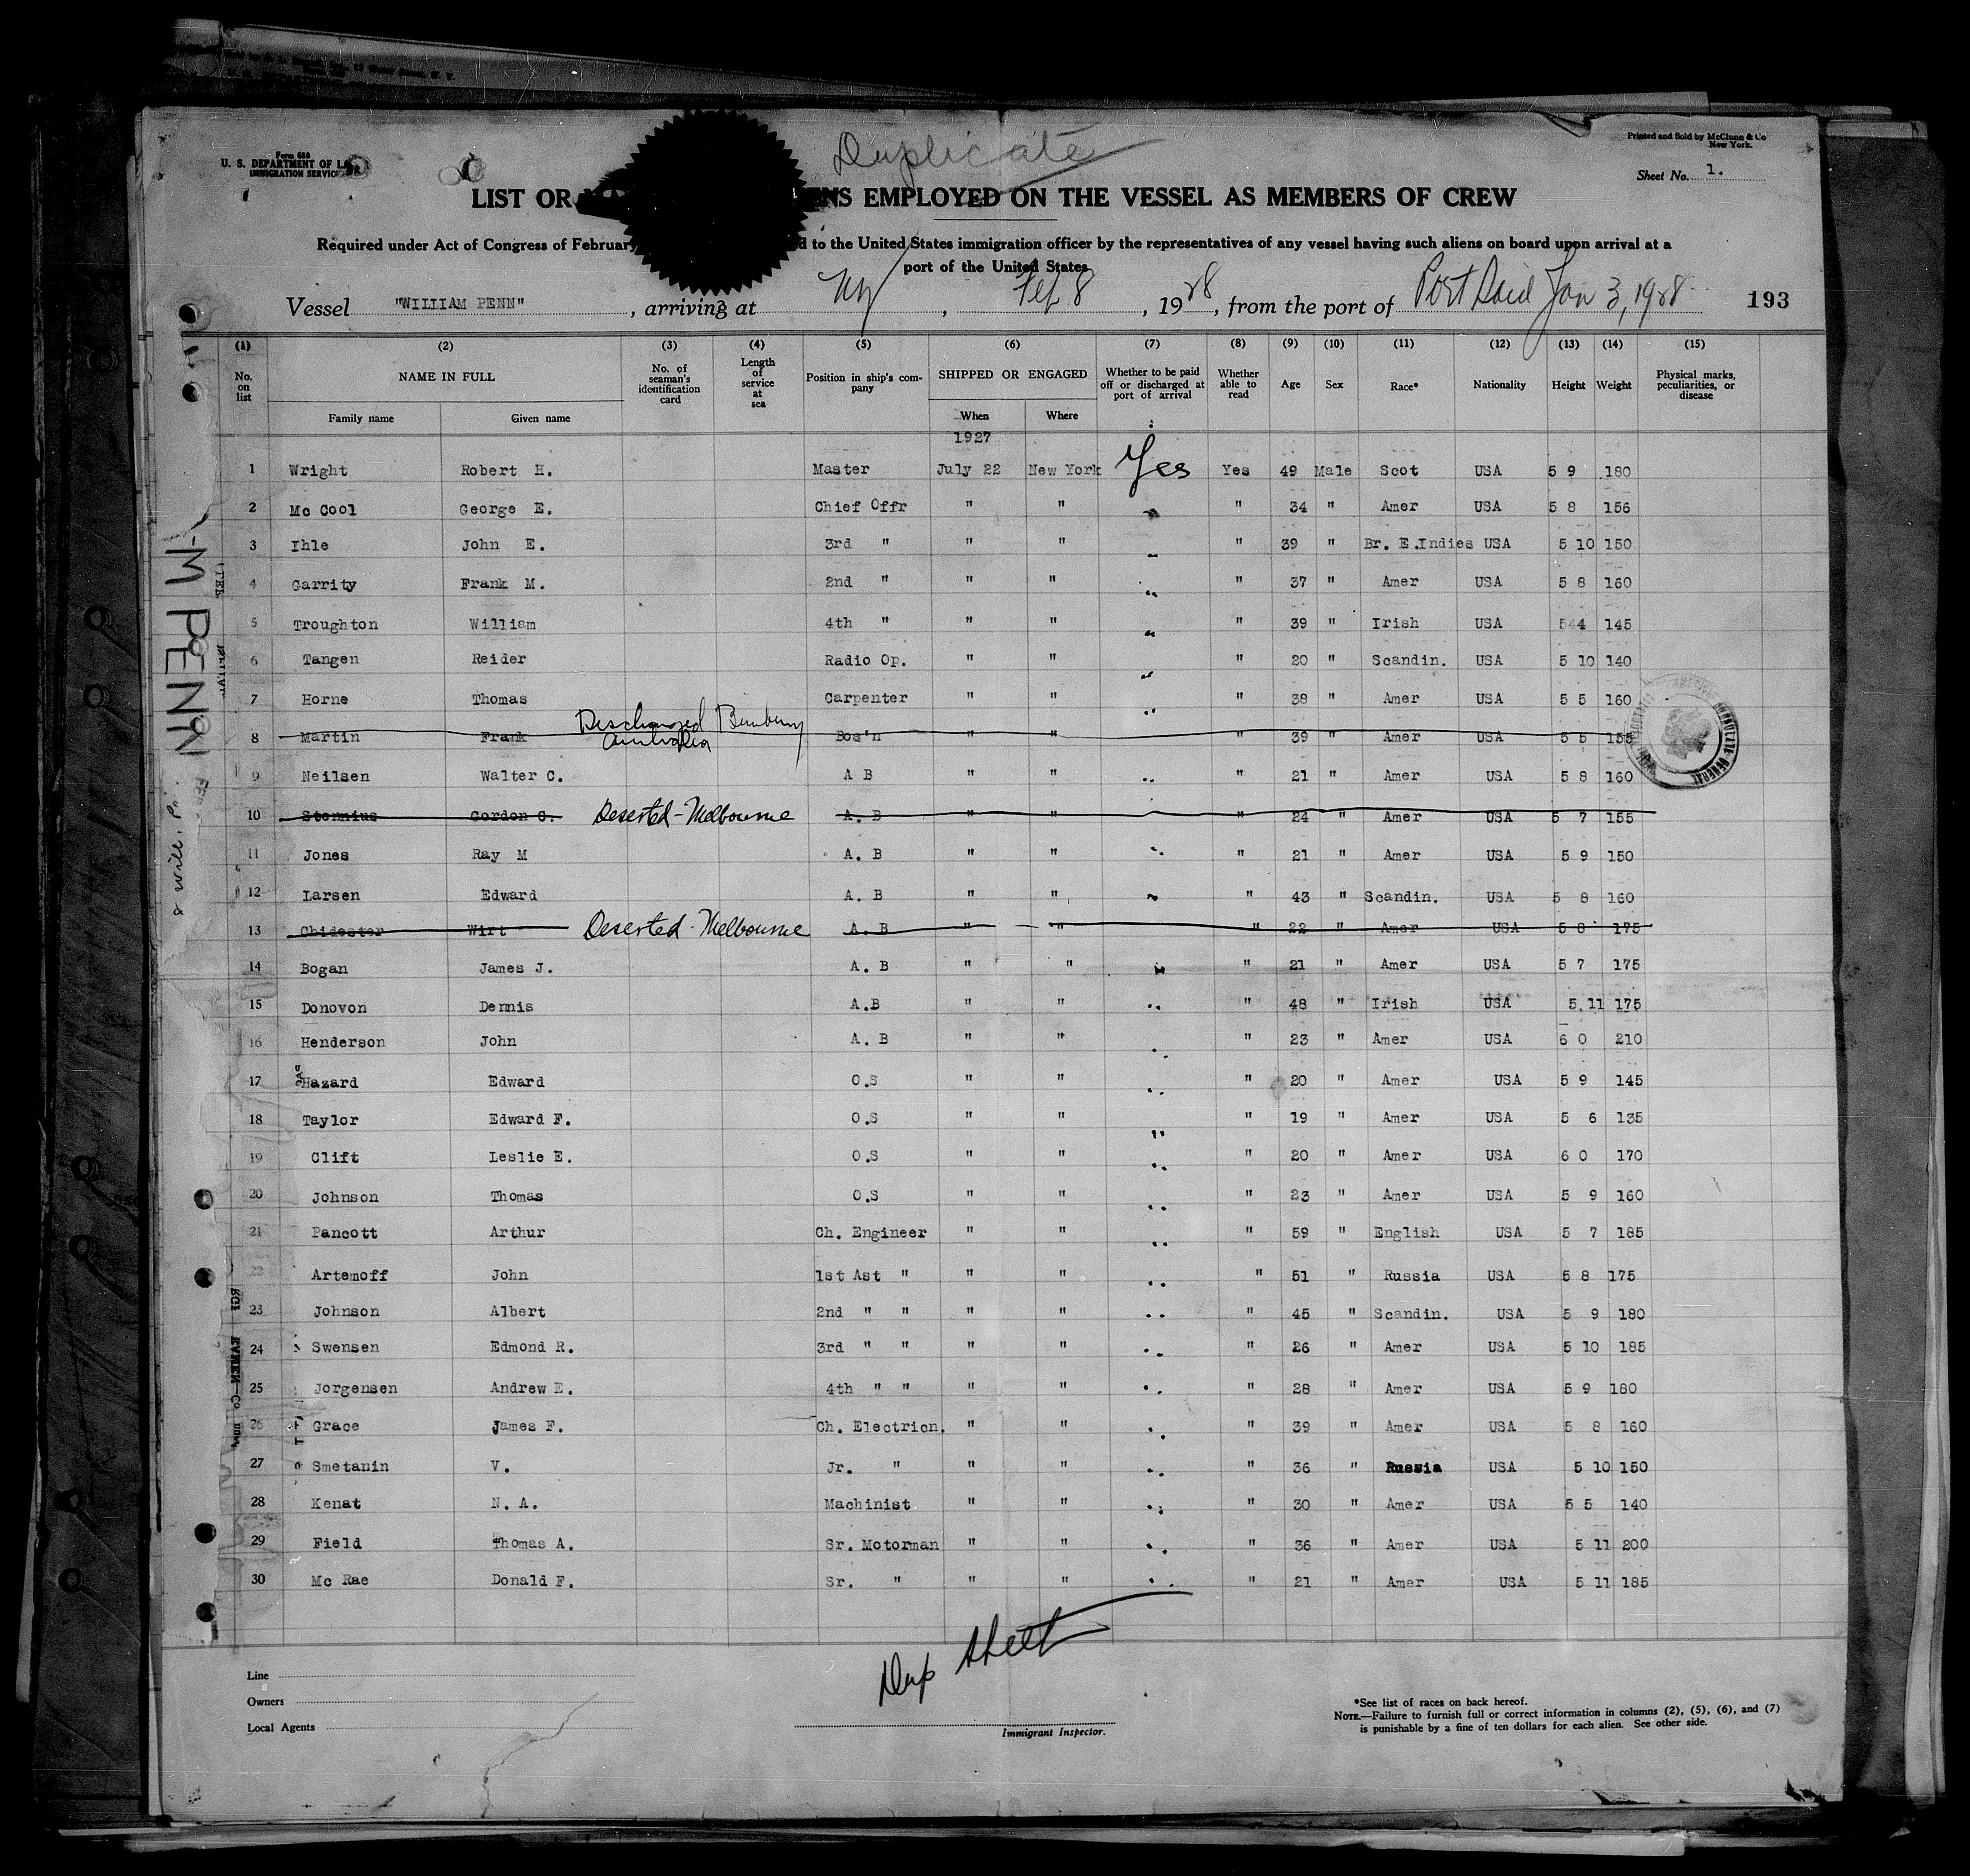 Duplicate
Printed and Sold by McClunn & Co
New York.
Form 680
U. S. DEPARTMENT OF LA
IMMIGRATION SERVICE
Sheet No. 1.
LIST OR NS EMPLOYED ON THE VESSEL AS MEMBERS OF CREW
Required under Act of Congress of February d to the United States immigration officer by the representatives of any vessel having such aliens on board upon arrival at a
port of the United States
Vessel "WILLIAM PENN", arriving at NY, Feb 8, 1928, from the port of Port Said Jan 3, 1928 193
(1) (2) (3) (4) (5) (6) (7) (8) (9) (10) (11) (12) (13) (14) (15)
No. on list NAME IN FULL No. of seaman's identification card Length of service at sea Position in ship's company SHIPPED OR ENGAGED Whether to be paid off or discharged at port of arrival Whether able to read Age Sex Race* Nationality Height Weight Physical marks, peculiarities, or disease
Family name Given name When Where
1927
1 Wright Robert H. Master July 22 New York Yes Yes 49 Male Scot USA 5 9 180
2 Mc Cool George E. Chief Offr " " " " 34 " Amer USA 5 8 156
3 Ihle John E. 3rd " " " " " 39 " Br. E.Indies USA 5 10 150
4 Garrity Frank M. 2nd " " " " " 37 " Amer USA 5 8 160
5 Troughton William 4th " " " " " 39 " Irish USA 5 4 145
6 Tangen Reider Radio Op. " " " " 20 " Scandin. USA 5 10 140
7 Horne Thomas Carpenter " " " " 38 " Amer USA 5 5 160
8 Martin Frank Discharged Bunbury Australia Bos'n " " " 39 " Amer USA 5 5 155
9 Neilsen Walter C. A B " " " " 21 " Amer USA 5 8 160
10 Stennius Gordon G. Deserted - Melbourne A. B " " " 24 " Amer USA 5 7 155
11 Jones Ray M A. B " " " " 21 " Amer USA 5 9 150
12 Larsen Edward A. B " " " " 43 " Scandin. USA 5 8 160
13 Chidester Wirt Deserted - Melbourne A. B " " " 22 " Amer USA 5 8 175
14 Bogan James J. A. B " " " " 21 " Amer USA 5 7 175
15 Donovon Dennis A.B " " " " 48 " Irish USA 5.11 175
16 Henderson John A. B " " " " 23 " Amer USA 6 0 210
17 Hazard Edward O.S " " " " 20 " Amer USA 5 9 145
18 Taylor Edward F. O.S " " " " 19 " Amer USA 5 6 135
19 Clift Leslie E. O.S " " " " 20 " Amer USA 6 0 170
20 Johnson Thomas O.S " " " " 23 " Amer USA 5 9 160
21 Pancott Arthur Ch. Engineer " " " " 59 " English USA 5 7 185
22 Artemoff John 1st Ast " " " " " 51 " Russia USA 5 8 175
23 Johnson Albert 2nd " " " " " " 45 " Scandin. USA 5 9 180
24 Swensen Edmond R. 3rd " " " " " " 26 " Amer USA 5 10 185
25 Jorgensen Andrew E. 4th " " " " " " 28 " Amer USA 5 9 180
26 Grace James F. Ch. Electricn. " " " " 39 " Amer USA 5 8 160
27 Smetanin V. Jr. " " " " " 36 " Russia USA 5 10 150
28 Kenat N. A. Machinist " " " " 30 " Amer USA 5 5 140
29 Field Thomas A. Sr. Motorman " " " " 36 " Amer USA 5 11 200
30 Mc Rae Donald F. Sr. " " " " " 21 " Amer USA 5 11 185
Dup sheet
Line
Owners
Local Agents
Immigrant Inspector.
*See list of races on back hereof.
NOTE.—Failure to furnish full or correct information in columns (2), (5), (6), and (7)
is punishable by a fine of ten dollars for each alien. See other side.
M PENN